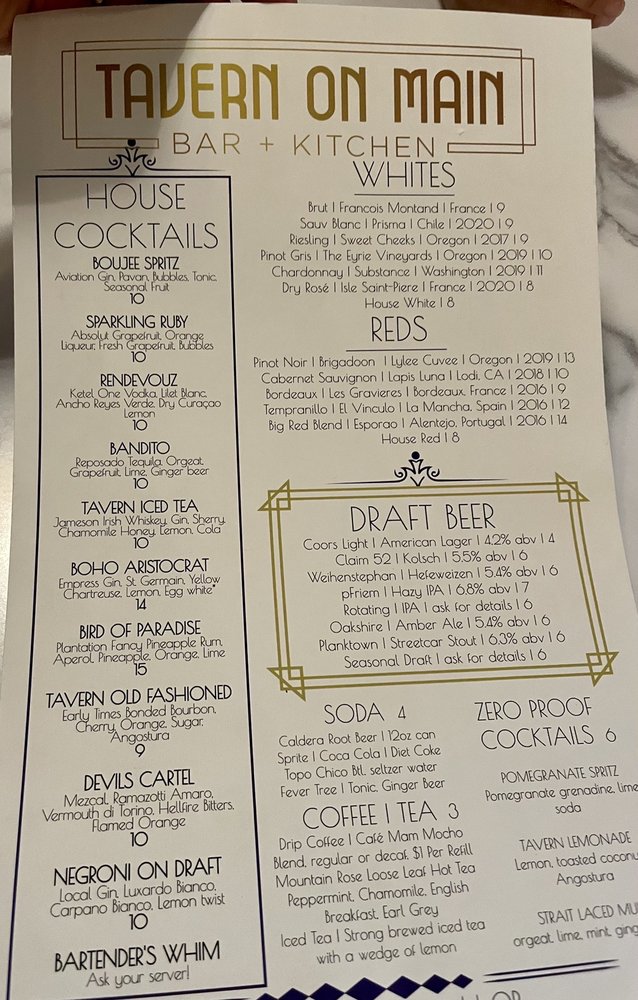 TAVERN ON MAIN
BAR + KITCHEN
HOUSE
COCKTAILS
BOUJEE SPRITZ
Aviation Gin, Pavan, Bubbles, Tonic,
Seasonal Fruit
10
SPARKLING RUBY
Absolut Grapefruit, Orange
Liqueur, Fresh Grapefruit, Bubbles
10
RENDEVOUZ
Ketel One Vodka, Lilet Blanc,
Ancho Reyes Verde, Dry Curaçao
Lemon
10
BANDITO
Reposado Tequila, Orgeat,
Grapefruit, Lime, Ginger beer
10
TAVERN ICED TEA
Jameson Irish Whiskey, Gin, Sherry,
Chamomile Honey, Lemon, Cola
10
BOHO ARISTOCRAT
Empress Gin, St. Germain, Yellow
Chartreuse, Lemon, Egg white*
14
BIRD OF PARADISE
Plantation Fancy Pineapple Rum,
Aperol, Pineapple, Orange, Lime
15
TAVERN OLD FASHIONED
Early Times Bonded Bourbon,
Cherry, Orange, Sugar,
Angostura
9
DEVILS CARTEL
Mezcal, Ramazotti Amaro,
Vermouth di Torino, Hellfire Bitters,
Flamed Orange
10
NEGRONI ON DRAFT
Local Gin, Luxardo Bianco,
Carpano Bianco, Lemon twist
10
BARTENDER'S WHIM
Ask your server!
WHITES
Brut | Francois Montand | France | 9
Sauv Blanc | Prisma | Chile | 2020 | 9
Riesling | Sweet Cheeks | Oregon | 2017 | 9
Pinot Gris | The Eyrie Vineyards | Oregon | 2019 | 10
Chardonnay | Substance | Washington | 2019 | 11
Dry Rosé | Isle Saint-Piere | France | 2020 | 8
House White | 8
REDS
Pinot Noir | Brigadoon | Lylee Cuvee | Oregon | 2019 | 13
Cabernet Sauvignon | Lapis Luna | Lodi, CA | 2018 | 10
Bordeaux | Les Gravieres | Bordeaux, France | 2016 | 9
Tempranillo | El Vinculo | La Mancha, Spain | 2016 | 12
Big Red Blend | Esporao | Alentejo, Portugal | 2016 | 14
House Red | 8
DRAFT BEER
Coors Light | American Lager | 4.2% abv | 4
Claim 52 | Kolsch | 5.5% abv | 6
Weihenstephan | Hefeweizen | 5.4% abv | 6
pFriem | Hazy IPA | 6.8% abv | 7
Rotating | IPA | ask for details | 6
Oakshire | Amber Ale | 5.4% abv | 6
Planktown | Streetcar Stout | 6.3% abv | 6
Seasonal Draft | ask for details | 6
SODA 4
Caldera Root Beer | 12oz can
Sprite | Coca Cola | Diet Coke
Topo Chico Btl. seltzer water
Fever Tree | Tonic, Ginger Beer
COFFEE | TEA 3
Drip Coffee | Café Mam Mocho
Blend, regular or decaf, $1 Per Refill
Mountain Rose Loose Leaf Hot Tea
Peppermint, Chamomile, English
Breakfast, Earl Grey
Iced Tea | Strong brewed iced tea
with a wedge of lemon
ZERO PROOF
COCKTAILS 6
POMEGRANATE SPRITZ
Pomegranate grenadine, lime
soda
TAVERN LEMONADE
Lemon, toasted coconu
Angostura
STRAIT LACED MU
orgeat, lime, mint, ging